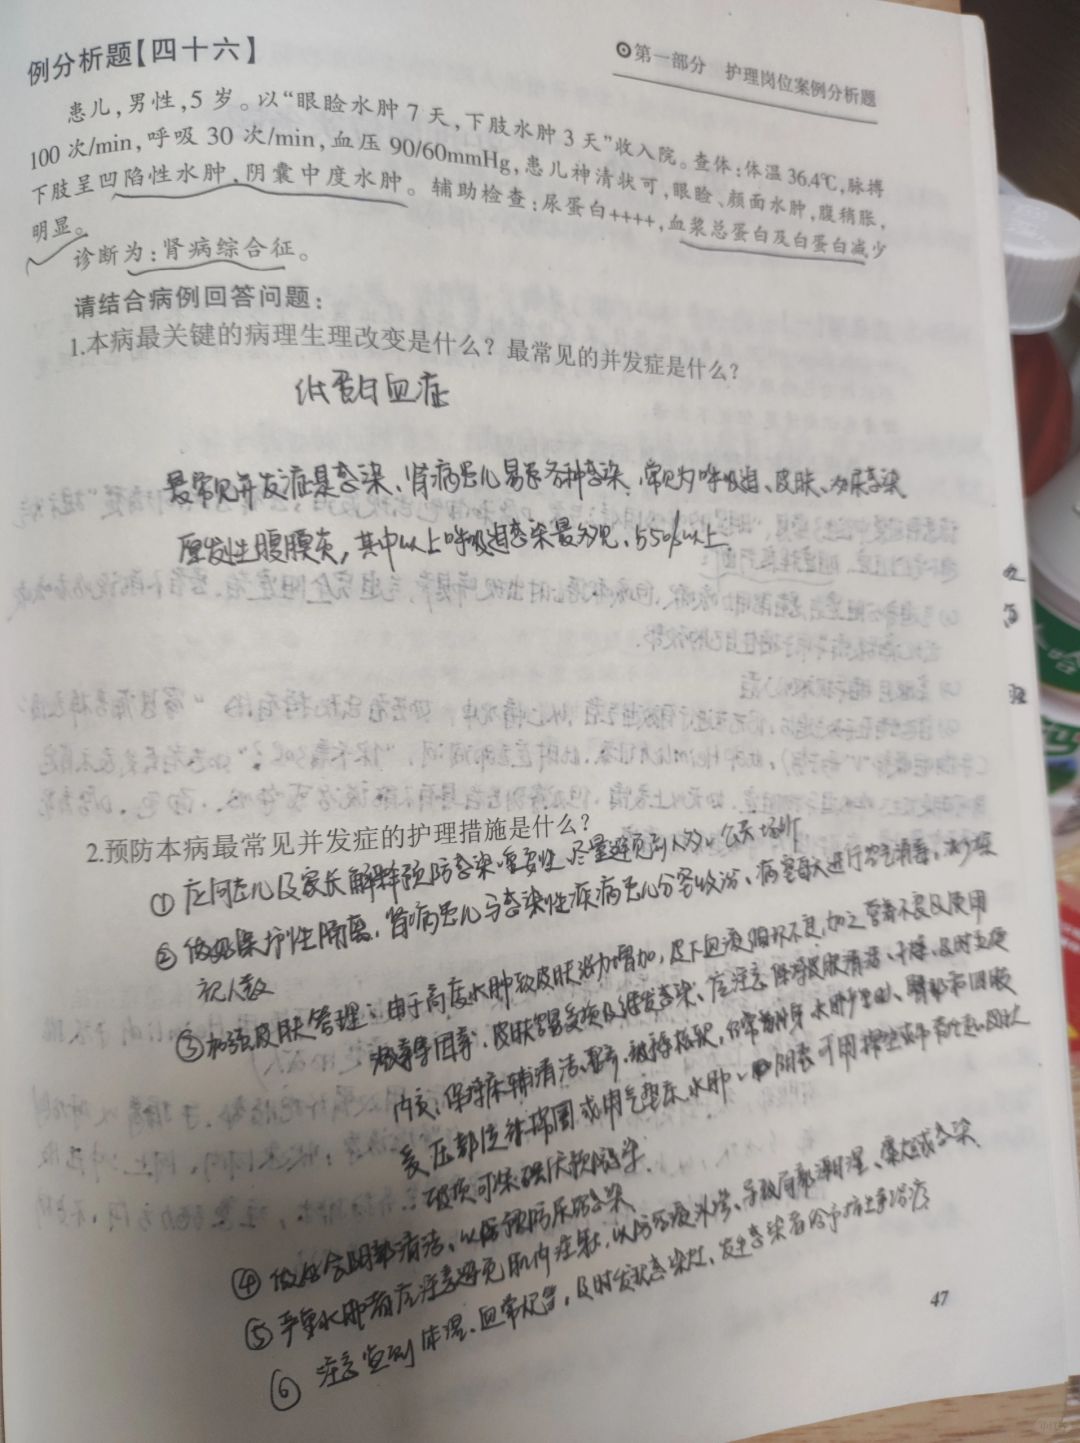 例分析题【四十六】
第一部分 护理岗位案例分析题
患儿,男性,5岁。以“眼睑水肿7天,下肢水肿3天”收入院。查体:体温36.4℃,脉搏
100次/min,呼吸30次/min,血压90/60mmHg,患儿神清状可,眼睑、颜面水肿,腹稍胀,
下肢呈凹陷性水肿,阴囊中度水肿。辅助检查:尿蛋白++++,血浆总蛋白及白蛋白减少
明显。
诊断为:肾病综合征。
请结合病例回答问题:
1.本病最关键的病理生理改变是什么?最常见的并发症是什么?
低蛋白血症
最常见并发症是感染、肾病患儿易患各种感染,常见为呼吸道、皮肤、泌尿感染
原发性腹膜炎,其中以上呼吸道感染最多见、50%以上
2.预防本病最常见并发症的护理措施是什么?
① 应向患儿及家长解释预防感染重要性,尽量避免到人多公共场所
② 做好保护性隔离,肾病患儿与感染性疾病患儿分室收治,病室每天进行空气消毒,减少探
视人数
③ 加强皮肤管理:由于高度水肿致皮肤张力增加,皮下血液循环不良,加之营养不良及使用
激素等因素,皮肤容易受损及继发感染、应注意保持皮肤清洁、干燥,及时更换
内衣;保持床铺清洁、整齐,被褥松软,经常翻身水肿严重时、臀部和四肢
受压部位垫棉圈或用气垫床 水肿阴囊可用棉垫或吊带托起,皮肤
破损可涂碘伏预防感染
④ 做好会阴部清洁、以预防尿路感染
⑤ 严重水肿者应注意避免肌内注射,以防药液外渗、导致局部潮湿、糜烂或感染
⑥ 注意监测体温、血常规等,及时发现感染灶、发生感染者给予抗生素治疗
47